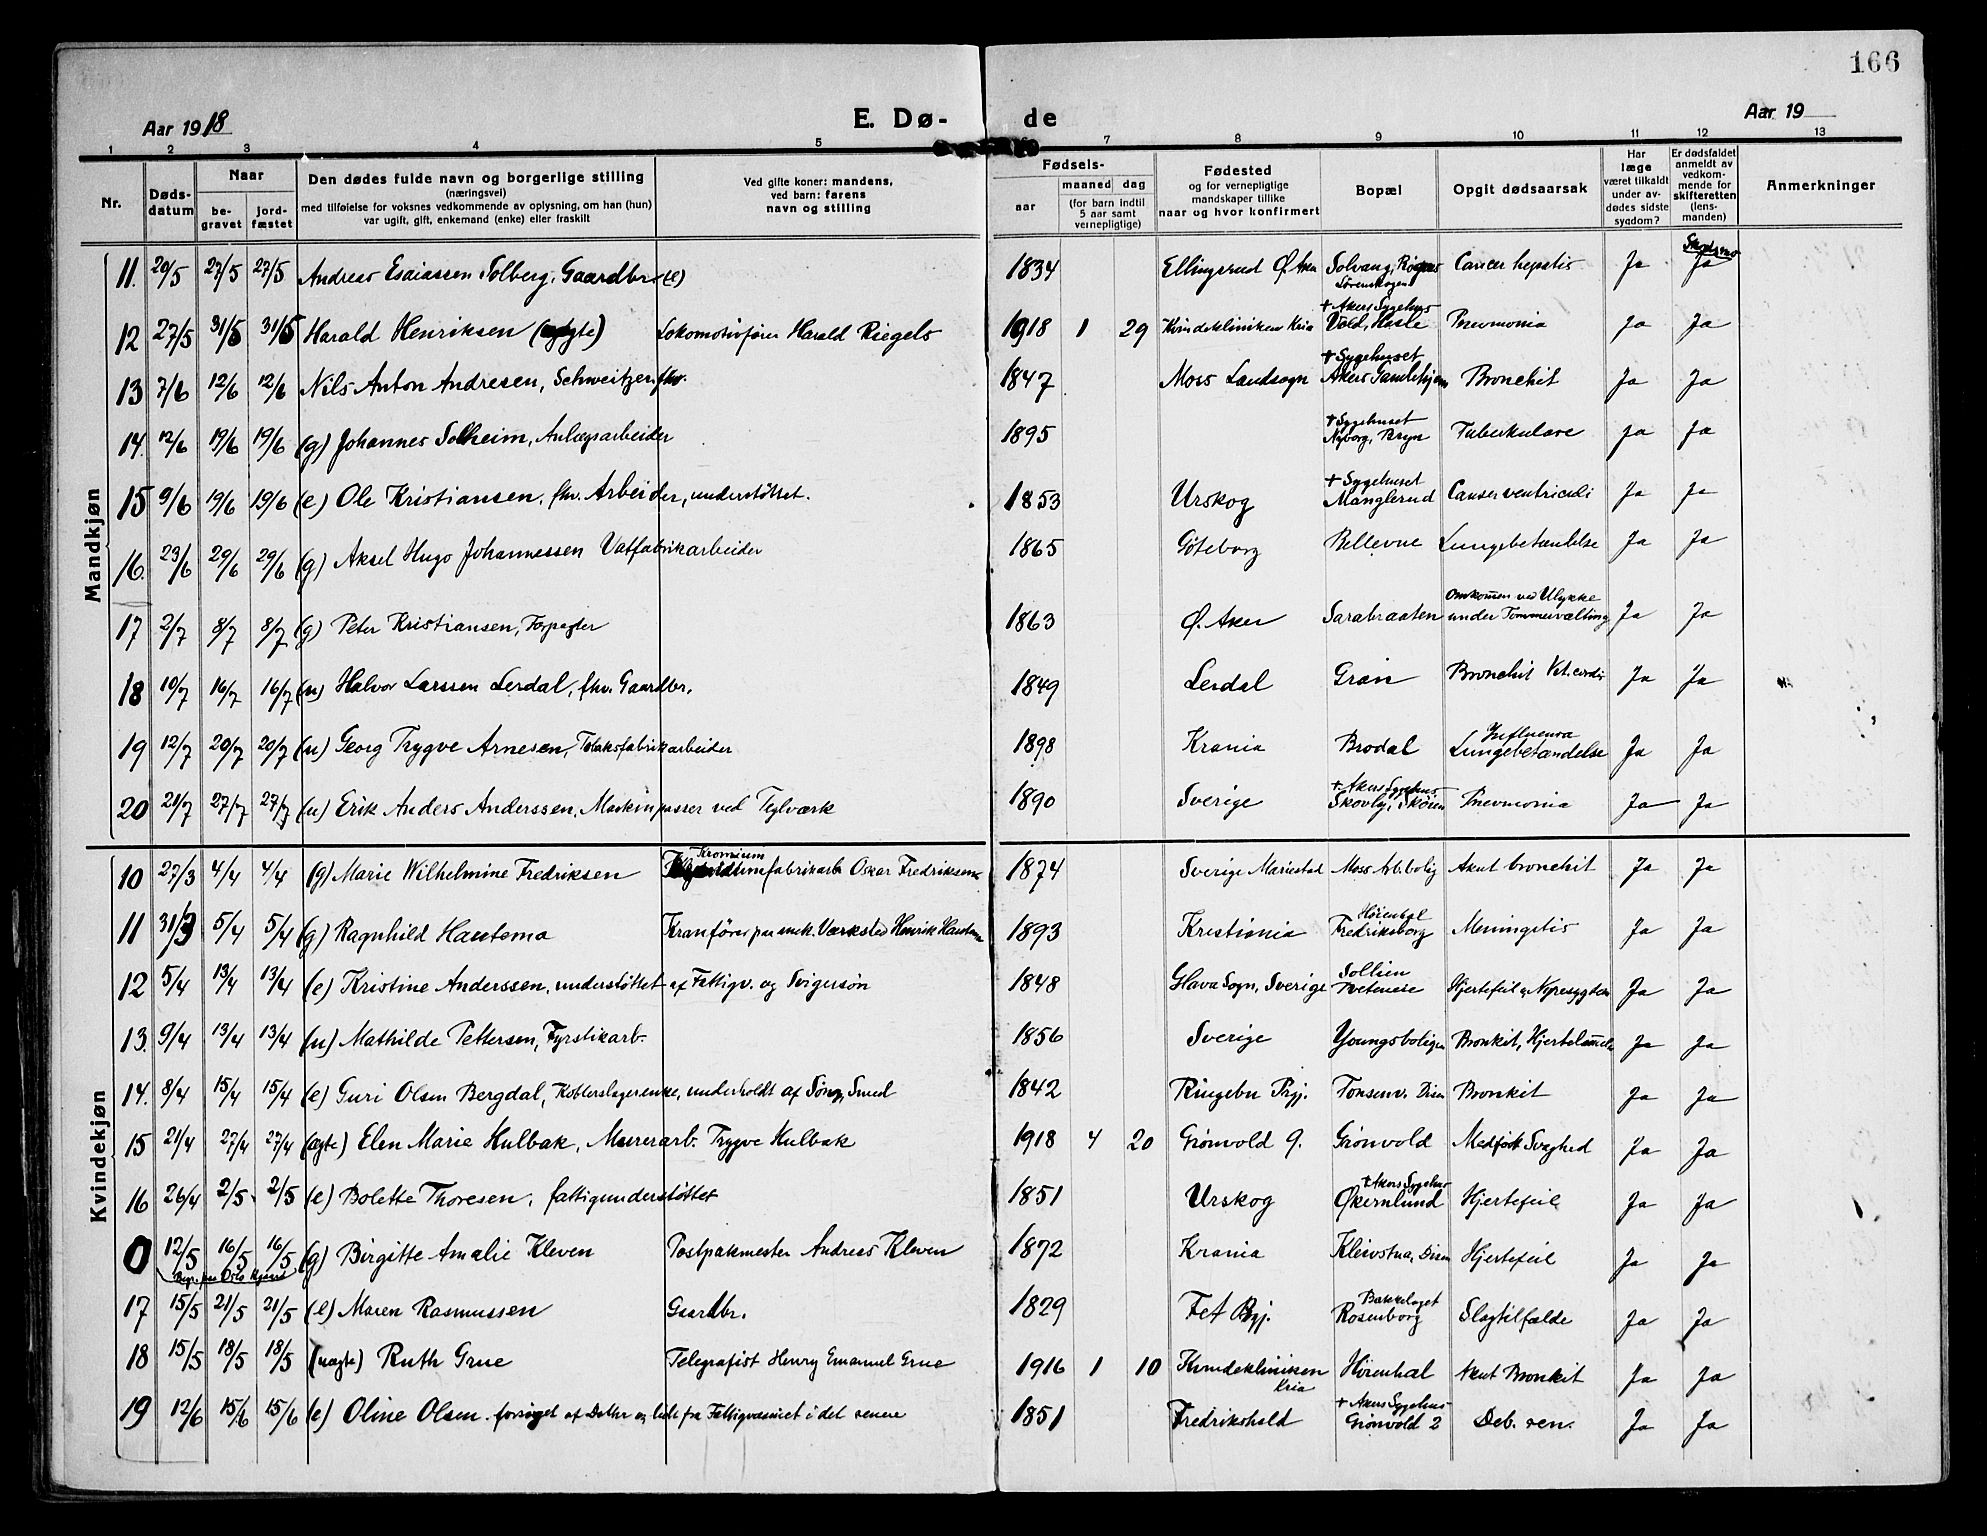 166
Aar 1918 E. Dø- de Aar 19
1 2 3 4 5 7 8 9 10 11 12 13
Nr. Døds-datum Naar be-gravet jord-fæstet Den dødes fulde navn og borgerlige stilling (næringsvei) med tilføielse for voksnes vedkommende av oplysning, om han (hun) var ugift, gift, enkemand (enke) eller fraskilt Ved gifte koner: mandens, ved barn: farens navn og stilling Fødsels- aar maaned dag (for barn indtil 5 aar samt vernepligtige) Fødested og for vernepligtige mandskaper tillike naar og hvor konfirmert Bopæl Opgit dødsaarsak Har læge været tilkaldt under av-dødes sidste sygdom? Er dødsfaldet anmeldt av vedkom-mende for skifteretten (lens-manden) Anmerkninger
Mandkjøn
11. 20/5 27/5 27/5 Andreas Esaiassen Solberg, Gaardbr. (e) 1834 Ellingsrud Ø. Aker Solvang, Lørenskogen Cancer hepatis Ja Ja
12 27/5 31/5 31/5 Harald Henriksen Lokomotivfører Harald Riegels 1918 1 29 Kvindekliniken Kria + Akers Sygehus Vold, Hasle Pnevmonia Ja Ja
13 7/6 12/6 12/6 Nils Anton Andresen, Schweitzer, fhv. 1847 Moss Landsogn + Sygehuset Akers Gamlehjem Bronchit Ja Ja
14. 12/6 19/6 19/6 (g) Johannes Solheim, Anlægsarbeider 1895 + Sygehuset Nyborg, Bryn Tuberkulose Ja Ja
15 9/6 19/6 19/6 (e) Ole Kristiansen, fhv. Arbeider, understøttet. 1853 Urskog + Sygehuset Manglerud Canser ventriculi Ja Ja
16. 23/6 29/6 29/6 (g) Aksel Hugo Johannessen Vatfabrikarbeider 1865 Gøteborg Bellevue Lungebetændelse Ja Ja
17 2/7 8/7 8/7 (g) Peter Kristiansen, Forpagter 1863 Ø. Aker Sarabraaten Omkommen ved Ulykke under Tømmervæltning Ja Ja
18 10/7 16/7 16/7 (u) Halvor Larssen Lerdal, fhv. Gaardbr. 1849 Lerdal Gran Bronchit Vit. cordis Ja Ja
19 12/7 20/7 20/7 (u) Georg Trygve Arnesen, Tobaksfabrikarbeider 1898 Krania Brodal Influenza Lungebetændelse Ja Ja
20 21/7 27/7 27/7 (u) Erik Anders Anderssen, Maskinpasser ved Teglværk 1890 Sverige + Akers Sygehus Skovly, Skøien Pnevmonia Ja Ja
Kvindekjøn
10 27/3 4/4 4/4 (g) Marie Wilhelmine Fredriksen Kromium fabrikarb Oskar Fredriksen 1874 Sverige Mariestad Moss Arb.bolig Akut bronchit Ja Ja
11 31/3 5/4 5/4 (g) Ragnhild Hautema Kranfører paa mek. Værksted Henrik Hautema 1893 Kristiania Høienhal Fredriksborg Meningitis Ja Ja
12 5/4 13/4 13/4 (e) Kristine Anderssen, understøttet af Fattigv. og Svigersøn 1848 Glava Sogn, Sverige Sollien Tveteneie Hjertefeil og Nyresygdom Ja Ja
13. 9/4 13/4 13/4 (u) Mathilde Pettersen, Fyrstikarb. 1856 Sverige Youngsboligen Bronkit, Hjertelammelse Ja Ja
14. 8/4 15/4 15/4 (e) Guri Olsen Bergdal, Koblerslagerenke, underholdt af Søn, Smed 1842 Ringebu Prgj. Tonsenv. Disen Bronkit Ja Ja
15 21/4 27/4 27/4 (ægte) Elen Marie Hulbak, Murerarb. Trygve Hulbak 1918 4 20 Grønvold g. Grønvold Medfødt Svaghed Ja Ja
16 26/4 2/5 2/5 (e) Bolette Thoresen, fattigunderstøttet 1851 Urskog + Akers Sygehus Økernlund Hjertefeil Ja Ja
0 12/5 16/5 16/5 (g) Birgitte Amalie Kleven Postpakmester Andreas Kleven 1872 Krania Kleivstua, Disen Hjertefeil Ja Ja
Begr. paa Oslo Kgaard
17 15/5 21/5 21/5 (e) Maren Rasmussen Gaardbr. 1829 Fet Prgj. Bakkelaget Rosenborg Slagtilfælde Ja Ja
18 15/5 18/5 18/5 (uægte) Ruth Grue Telegrafist Henry Emanuel Grue 1916 1 10 Kvindekliniken Kria Høienhal Akut Bronkit Ja Ja
19 12/6 15/6 15/6 (e) Oline Olsen, forsørget af Datter og lidt fra Fattigvæsenet i det senere 1851 Fredrikshald + Akers Sygehus Grønvold 2 Deb. sen. Ja Ja